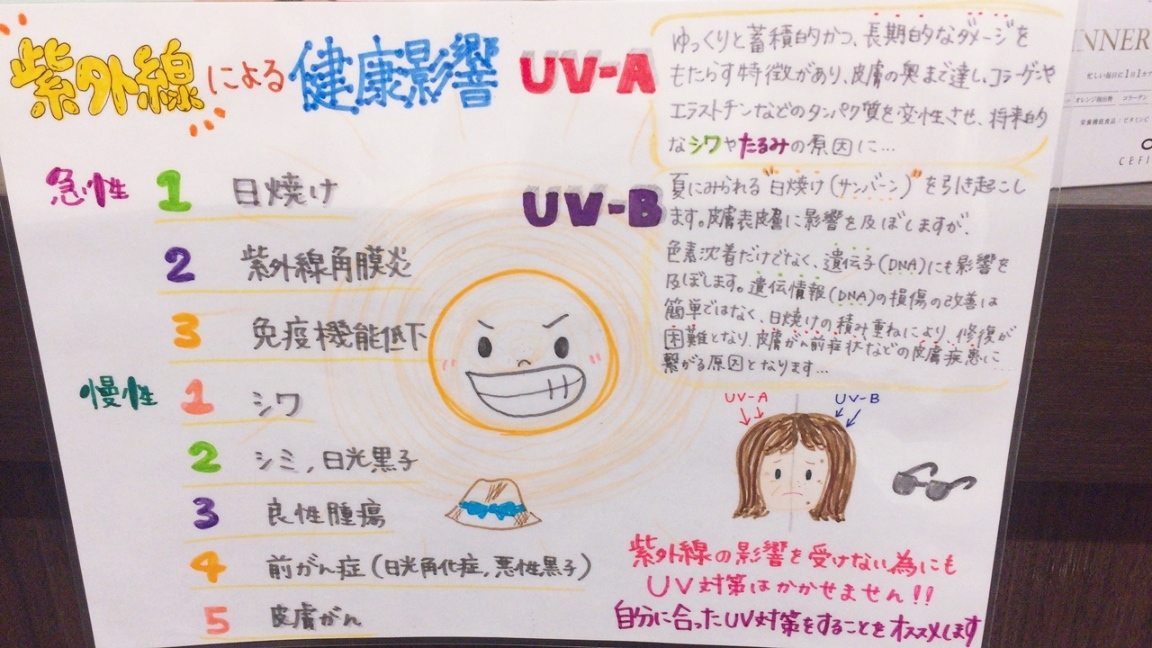 紫外線による健康影響
急性 1 日焼け
2 紫外線角膜炎
3 免疫機能低下
慢性 1 シワ
2 シミ,日光黒子
3 良性腫瘍
4 前がん症(日光角化症,悪性黒子)
5 皮膚がん
UV-A
ゆっくりと蓄積的かつ、長期的なダメージを
もたらす特徴があり、皮膚の奥まで達し、コラーゲンや
エラストチンなどのタンパク質を変性させ、将来的
なシワやたるみの原因に…
UV-B
夏にみられる"日焼け(サンバーン)"を引き起こし
ます。皮膚表皮層に影響を及ぼしますが、
色素沈着だけでなく、遺伝子(DNA)にも影響を
及ぼします。遺伝情報(DNA)の損傷の改善は
簡単ではなく、日焼けの積み重ねにより、修復が
困難となり、皮膚がん前症状などの皮膚疾患に
繋がる原因となります…
UV-A UV-B
紫外線の影響を受けない為にも
UV対策はかかせません!!
自分に合ったUV対策をすることをオススメします
NNER
忙しい毎日に1日1
オレンジ抽出物 コラーゲン
栄養機能食品/ビタミンC
CEFI